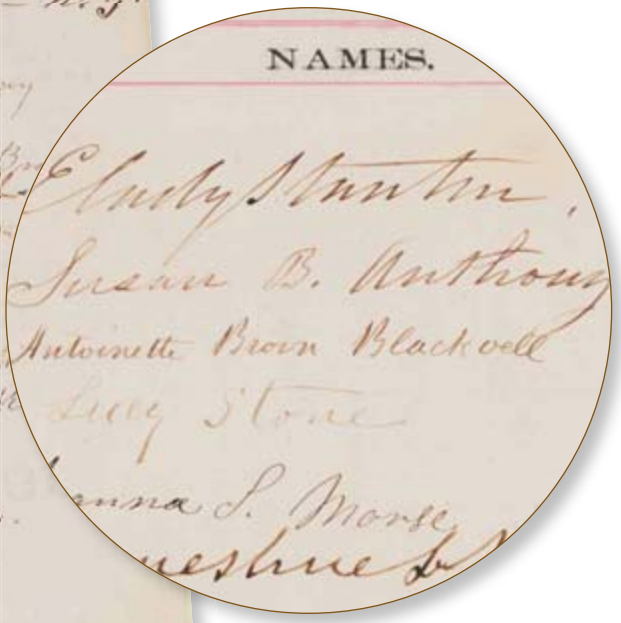 NAMES.
E Cady Stanton,
Susan B. Anthony
Antoinette Brown Blackwell
Lucy Stone
anna S. Morse